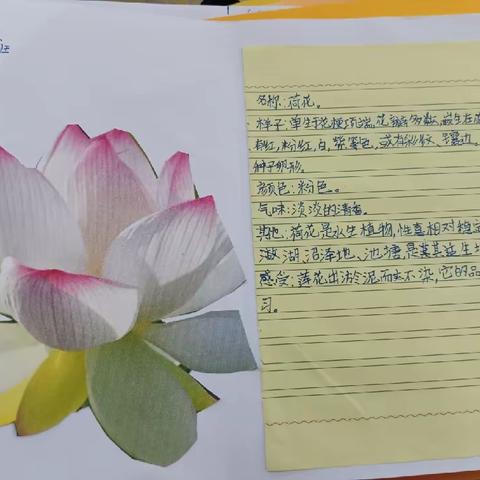 班
名称:荷花。
样子:单生于花梗顶端,花瓣多数,嵌生在
红,粉红,白,紫等色,或有彩纹、镶边。
种子卵形。
颜色:粉色。
气味:淡淡的清香。
其他:荷花是水生植物,性喜相对稳定
湖沼泽地、池塘,是其
感受:莲花出淤泥而不染,它的品
习。